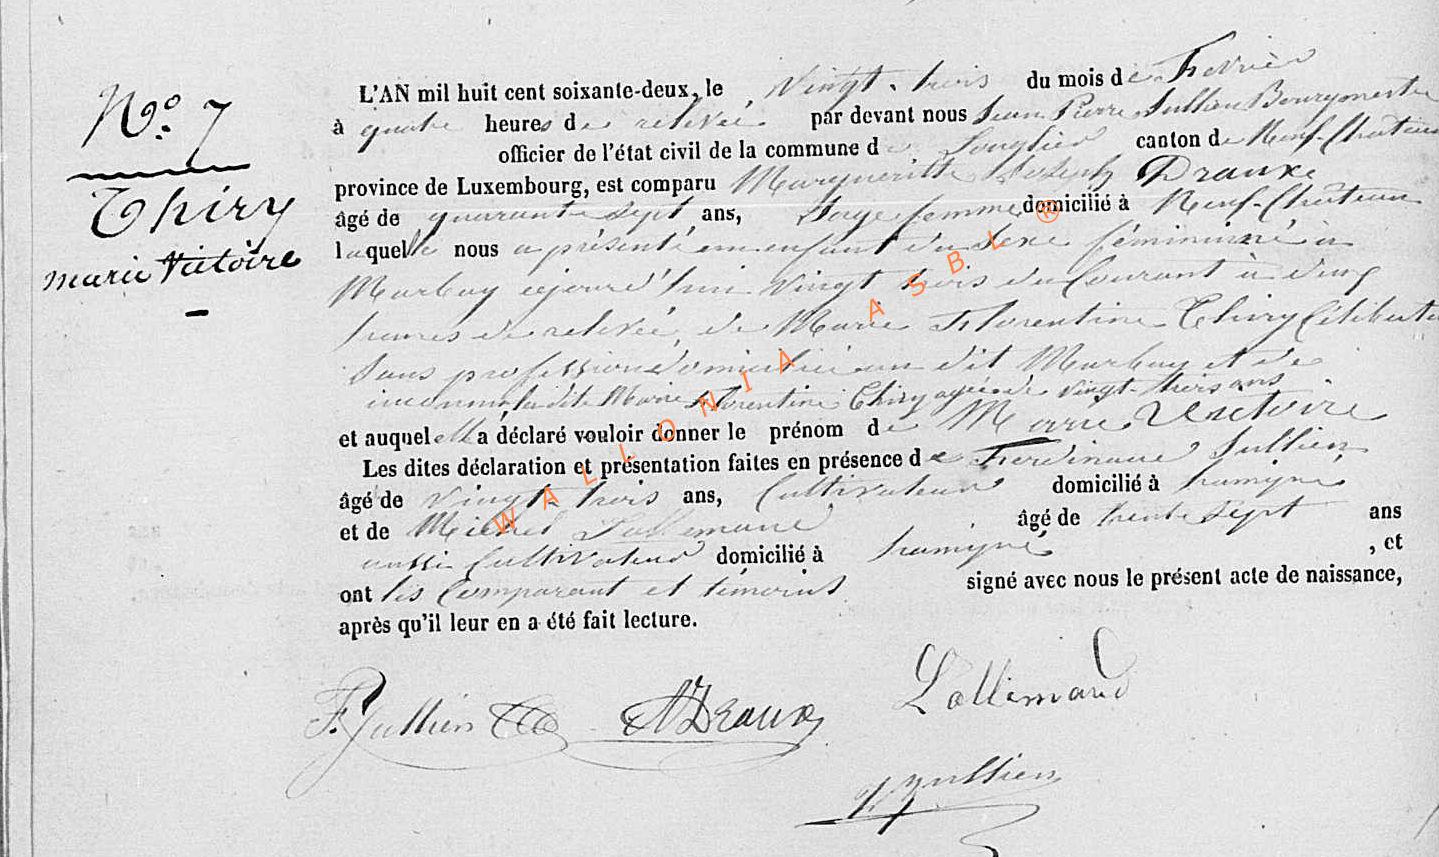 N° 7
Thiry
marie Victoire
L'AN mil huit cent soixante-deux, le vingt-trois du mois de Fevrier
à quatre heures de relevée par devant nous Jean Pierre Jullien Bourgmestre
officier de l'état civil de la commune de Longlier canton de Neuf-Château
province de Luxembourg, est comparu Margueritte Joseph Draux
âgé de quarante sept ans, Sage femme domicilié à Neuf-Château
laquelle nous a présenté un enfant du sexe féminin né à
Marbay aujourd'hui vingt trois du Courant à cinq
heures de relevée, de Marie Florentine Thiry Célibataire
Sans profession domiciliée au dit Marbay et de
inconnu, la dite Marie Florentine Thiry agée de vingt trois ans
et auquel elle a déclaré vouloir donner le prénom de Marie Victoire
Les dites déclaration et présentation faites en présence de Ferdinand Jullien
âgé de vingt-trois ans, Cultivateur domicilié à tramogne
et de Michel Lallemand âgé de trente Sept ans
aussi Cultivateur domicilié à , et
ont les Comparant et témoins signé avec nous le présent acte de naissance,
après qu'il leur en a été fait lecture.
F. Jullien Draux Lallemand
Jullien
WALLONIA ASBL ®